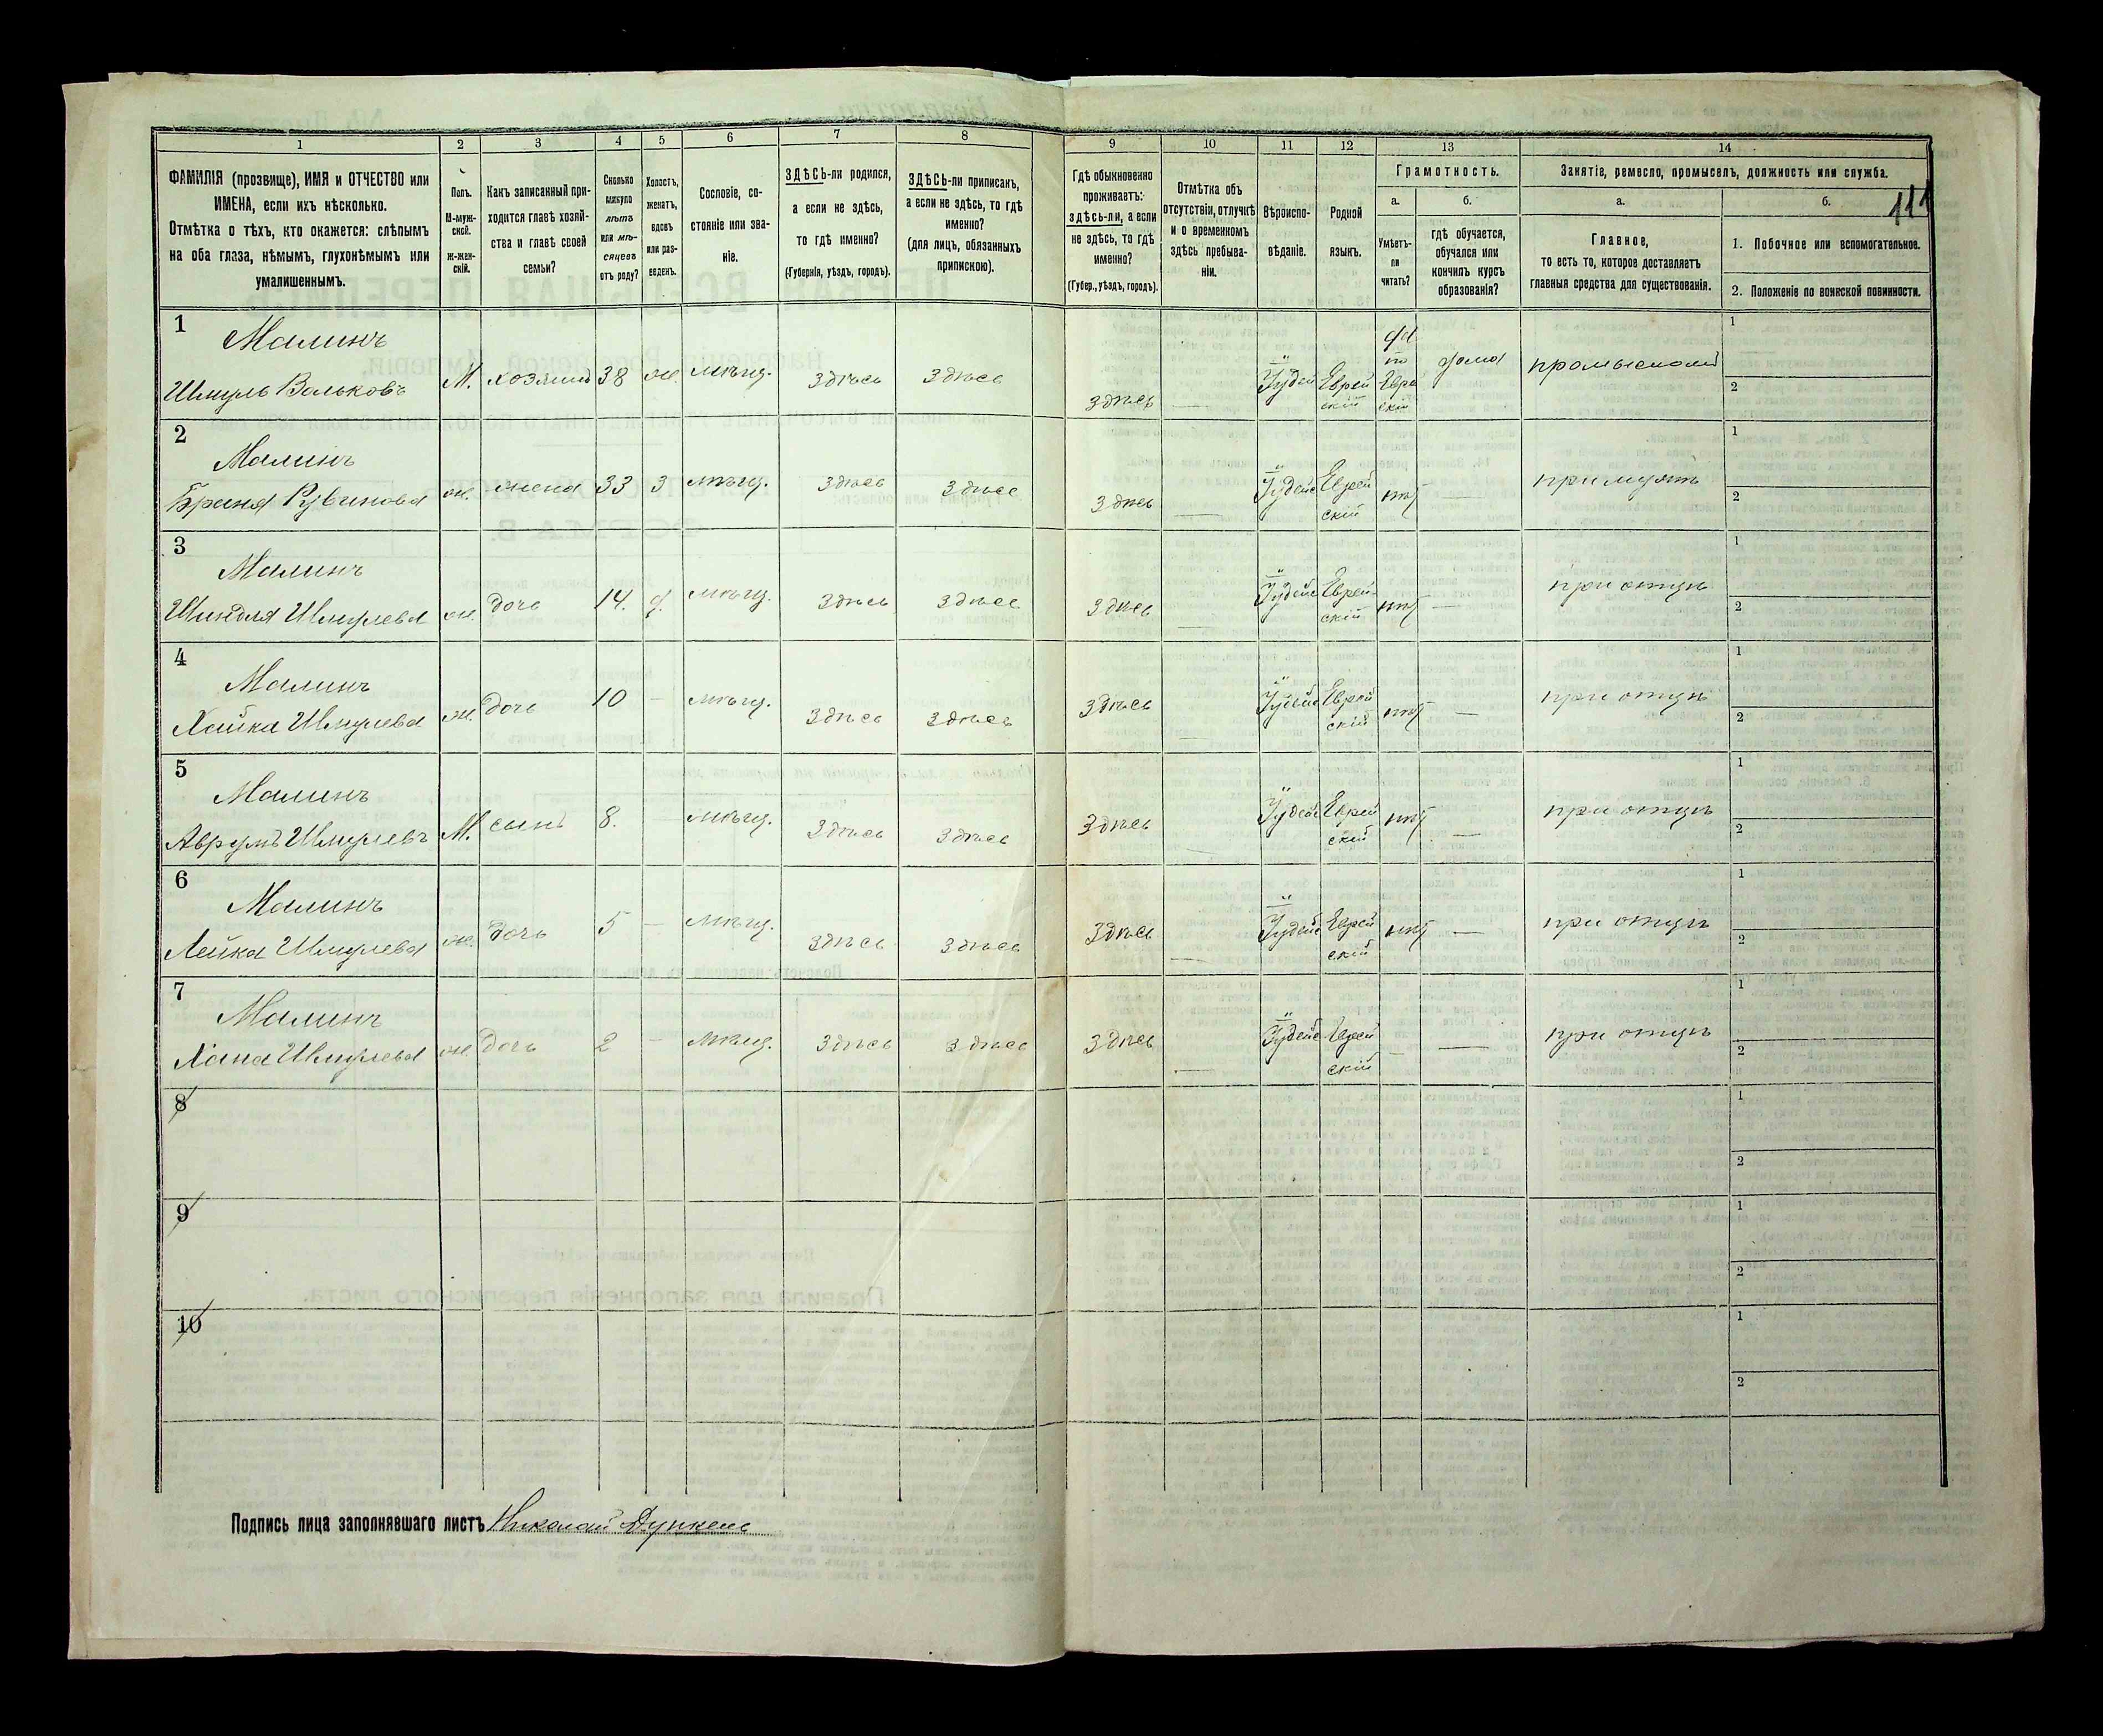 1 2 3 4 5 6 7 8 9 10 11 12 13 14
111
ФАМИЛІЯ (прозвище), ИМЯ и ОТЧЕСТВО или
ИМЕНА, если ихъ нѣсколько.
Отмѣтка о тѣхъ, кто окажется: слѣпымъ
на оба глаза, нѣмымъ, глухонѣмымъ или
умалишеннымъ.
Полъ.
М-муж-
ской.
Ж-жен-
скій.
Какъ записанный при-
ходится главѣ хозяй-
ства и главѣ своей
семьи?
Сколько
минуло
лѣтъ
или мѣ-
сяцевъ
отъ роду?
Холостъ,
женатъ,
вдовъ
или раз-
веденъ.
Сословіе, со-
стояніе или зва-
ніе.
ЗДѢСЬ-ли родился,
а если не здѣсь,
то гдѣ именно?
(Губернія, уѣздъ, городъ).
ЗДѢСЬ-ли приписанъ,
а если не здѣсь, то гдѣ
именно?
(для лицъ, обязанныхъ
припискою).
Гдѣ обыкновенно
проживаетъ:
здѣсь-ли, а если
не здѣсь, то гдѣ
именно?
(Губер., уѣздъ, городъ).
Отмѣтка объ
отсутствіи, отлучкѣ
и о временномъ
здѣсь пребыва-
ніи.
Вѣроиспо-
вѣданіе.
Родной
языкъ.
Грамотность.
а.
Умѣетъ-
ли
читать?
б.
гдѣ обучается,
обучался или
кончилъ курсъ
образованія?
Занятіе, ремесло, промыселъ, должность или служба.
а.
Главное,
то есть то, которое доставляетъ
главныя средства для существованія.
б.
1. Побочное или вспомогательное.
2. Положеніе по воинской повинности.
1 Малинъ
Шмуль Вольковъ М. хозяинъ 38 ж. мѣщ. здѣсь здѣсь здѣсь Іудей Еврей
скій да
по
Евре
скій дома 1
2
2 Малинъ
Брина Рувинова ж. жена 33 з мѣщ. здѣсь здѣсь здѣсь Іудейс Еврей
скій нѣт при мужѣ 1
2
3 Малинъ
Шмулева ж. дочь 14. д. мѣщ. здѣсь здѣсь здѣсь Іудейс Еврей
скій нѣт при отцѣ 1
2
4 Малинъ
Хайка Шмулева ж. дочь 10 мѣщ. здѣсь здѣсь здѣсь Іудейс Еврей
скій нѣт при отцѣ 1
2
5 Малинъ
Аврумъ Шмулевъ М. сынъ 8. мѣщ. здѣсь здѣсь здѣсь Іудей Еврей
скій нѣт при отцѣ 1
2
6 Малинъ
Лейка Шмулева ж. дочь 5 мѣщ. здѣсь здѣсь здѣсь Іудейс Еврей
скій нѣт при отцѣ 1
2
7 Малинъ
Хана Шмулева ж. дочь 2 мѣщ. здѣсь здѣсь здѣсь Іудейс Еврей
скій при отцѣ 1
2
8 1
2
9 1
2
10 1
2
Подпись лица заполнявшаго листъ Николай